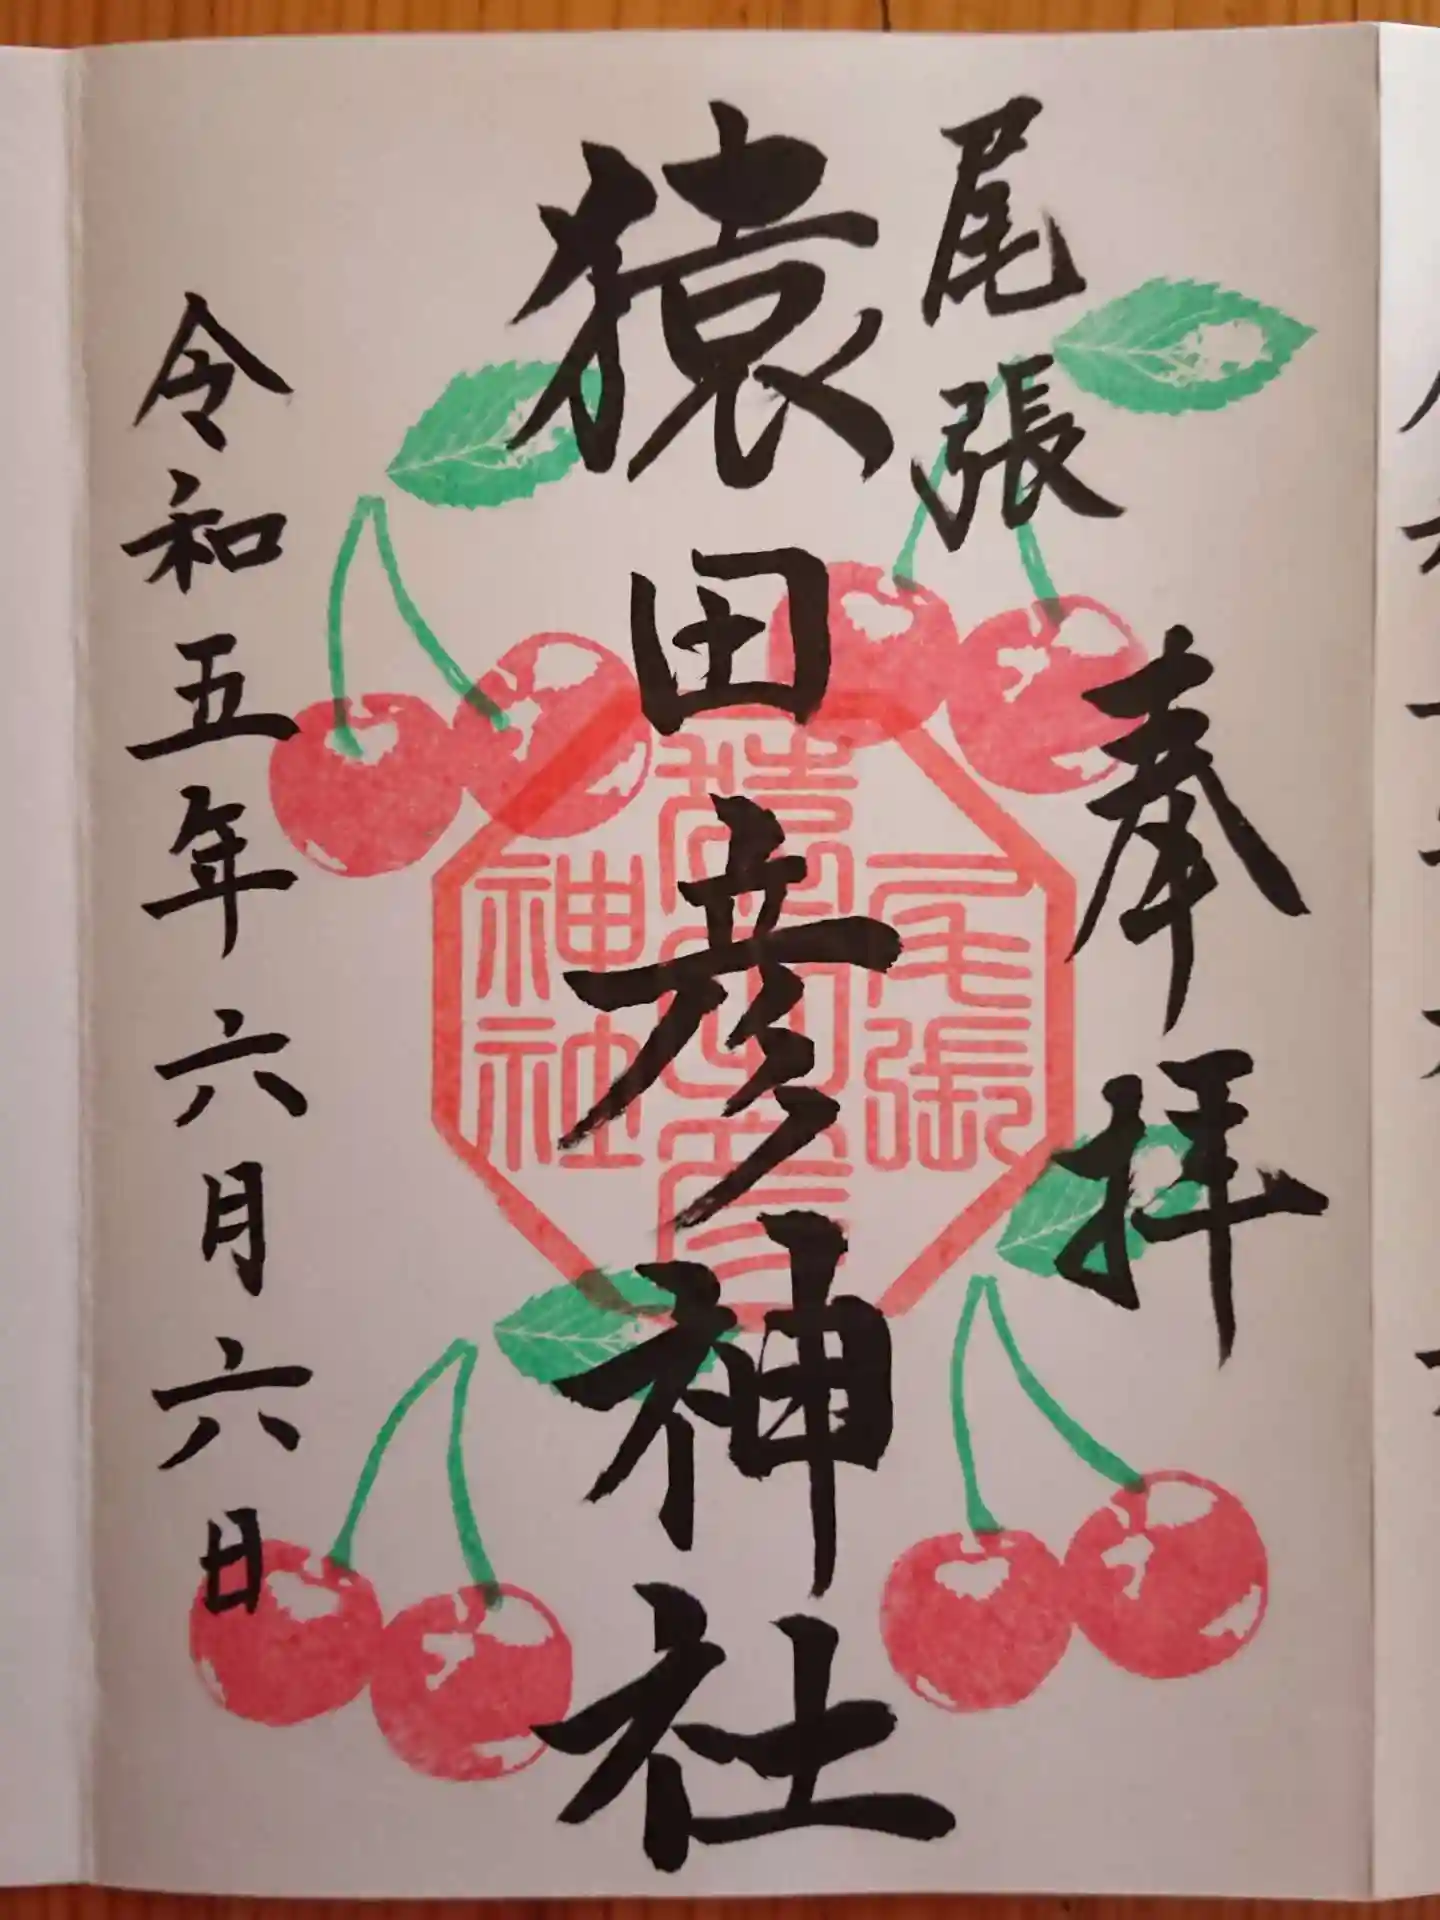 奉拝
尾張
猿田彦神社
令和五年六月六日
尾張
猿田彦
神社